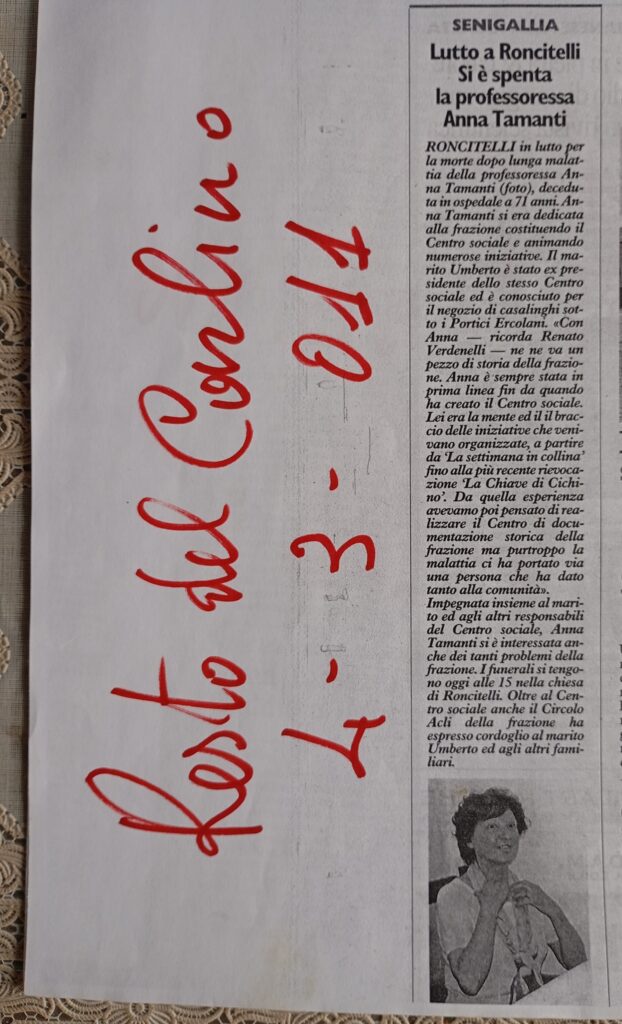 Resto del Carlino
4-3-011
SENIGALLIA
Lutto a Roncitelli
Si è spenta
la professoressa
Anna Tamanti
RONCITELLI in lutto per
la morte dopo lunga malat-
tia della professoressa An-
na Tamanti (foto), decedu-
ta in ospedale a 71 anni. An-
na Tamanti si era dedicata
alla frazione costituendo il
Centro sociale e animando
numerose iniziative. Il ma-
rito Umberto è stato ex pre-
sidente dello stesso Centro
sociale ed è conosciuto per
il negozio di casalinghi sot-
to i Portici Ercolani. «Con
Anna — ricorda Renato
Verdenelli — ne ne va un
pezzo di storia della frazio-
ne. Anna è sempre stata in
prima linea fin da quando
ha creato il Centro sociale.
Lei era la mente ed il il brac-
cio delle iniziative che veni-
vano organizzate, a partire
da 'La settimana in collina'
fino alla più recente rievoca-
zione 'La Chiave di Cichi-
no'. Da quella esperienza
avevamo poi pensato di rea-
lizzare il Centro di docu-
mentazione storica della
frazione ma purtroppo la
malattia ci ha portato via
una persona che ha dato
tanto alla comunità».
Impegnata insieme al mari-
to ed agli altri responsabili
del Centro sociale, Anna
Tamanti si è interessata an-
che dei tanti problemi della
frazione. I funerali si tengo-
no oggi alle 15 nella chiesa
di Roncitelli. Oltre al Cen-
tro sociale anche il Circolo
Acli della frazione ha
espresso cordoglio al marito
Umberto ed agli altri fami-
liari.